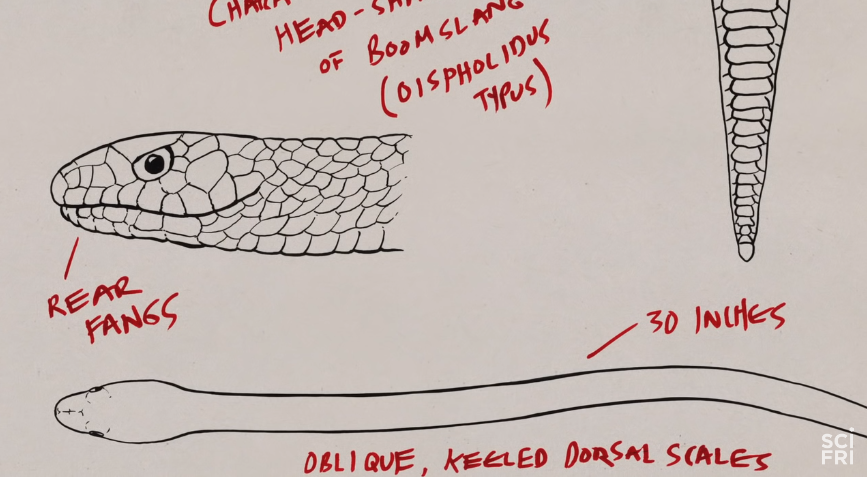 HEAD-SHA
OF BOOMSLANG
(DISPHOLIDUS
TYPUS)
REAR
FANGS
30 INCHES
OBLIQUE, KEELED DORSAL SCALES
SCI
FRI